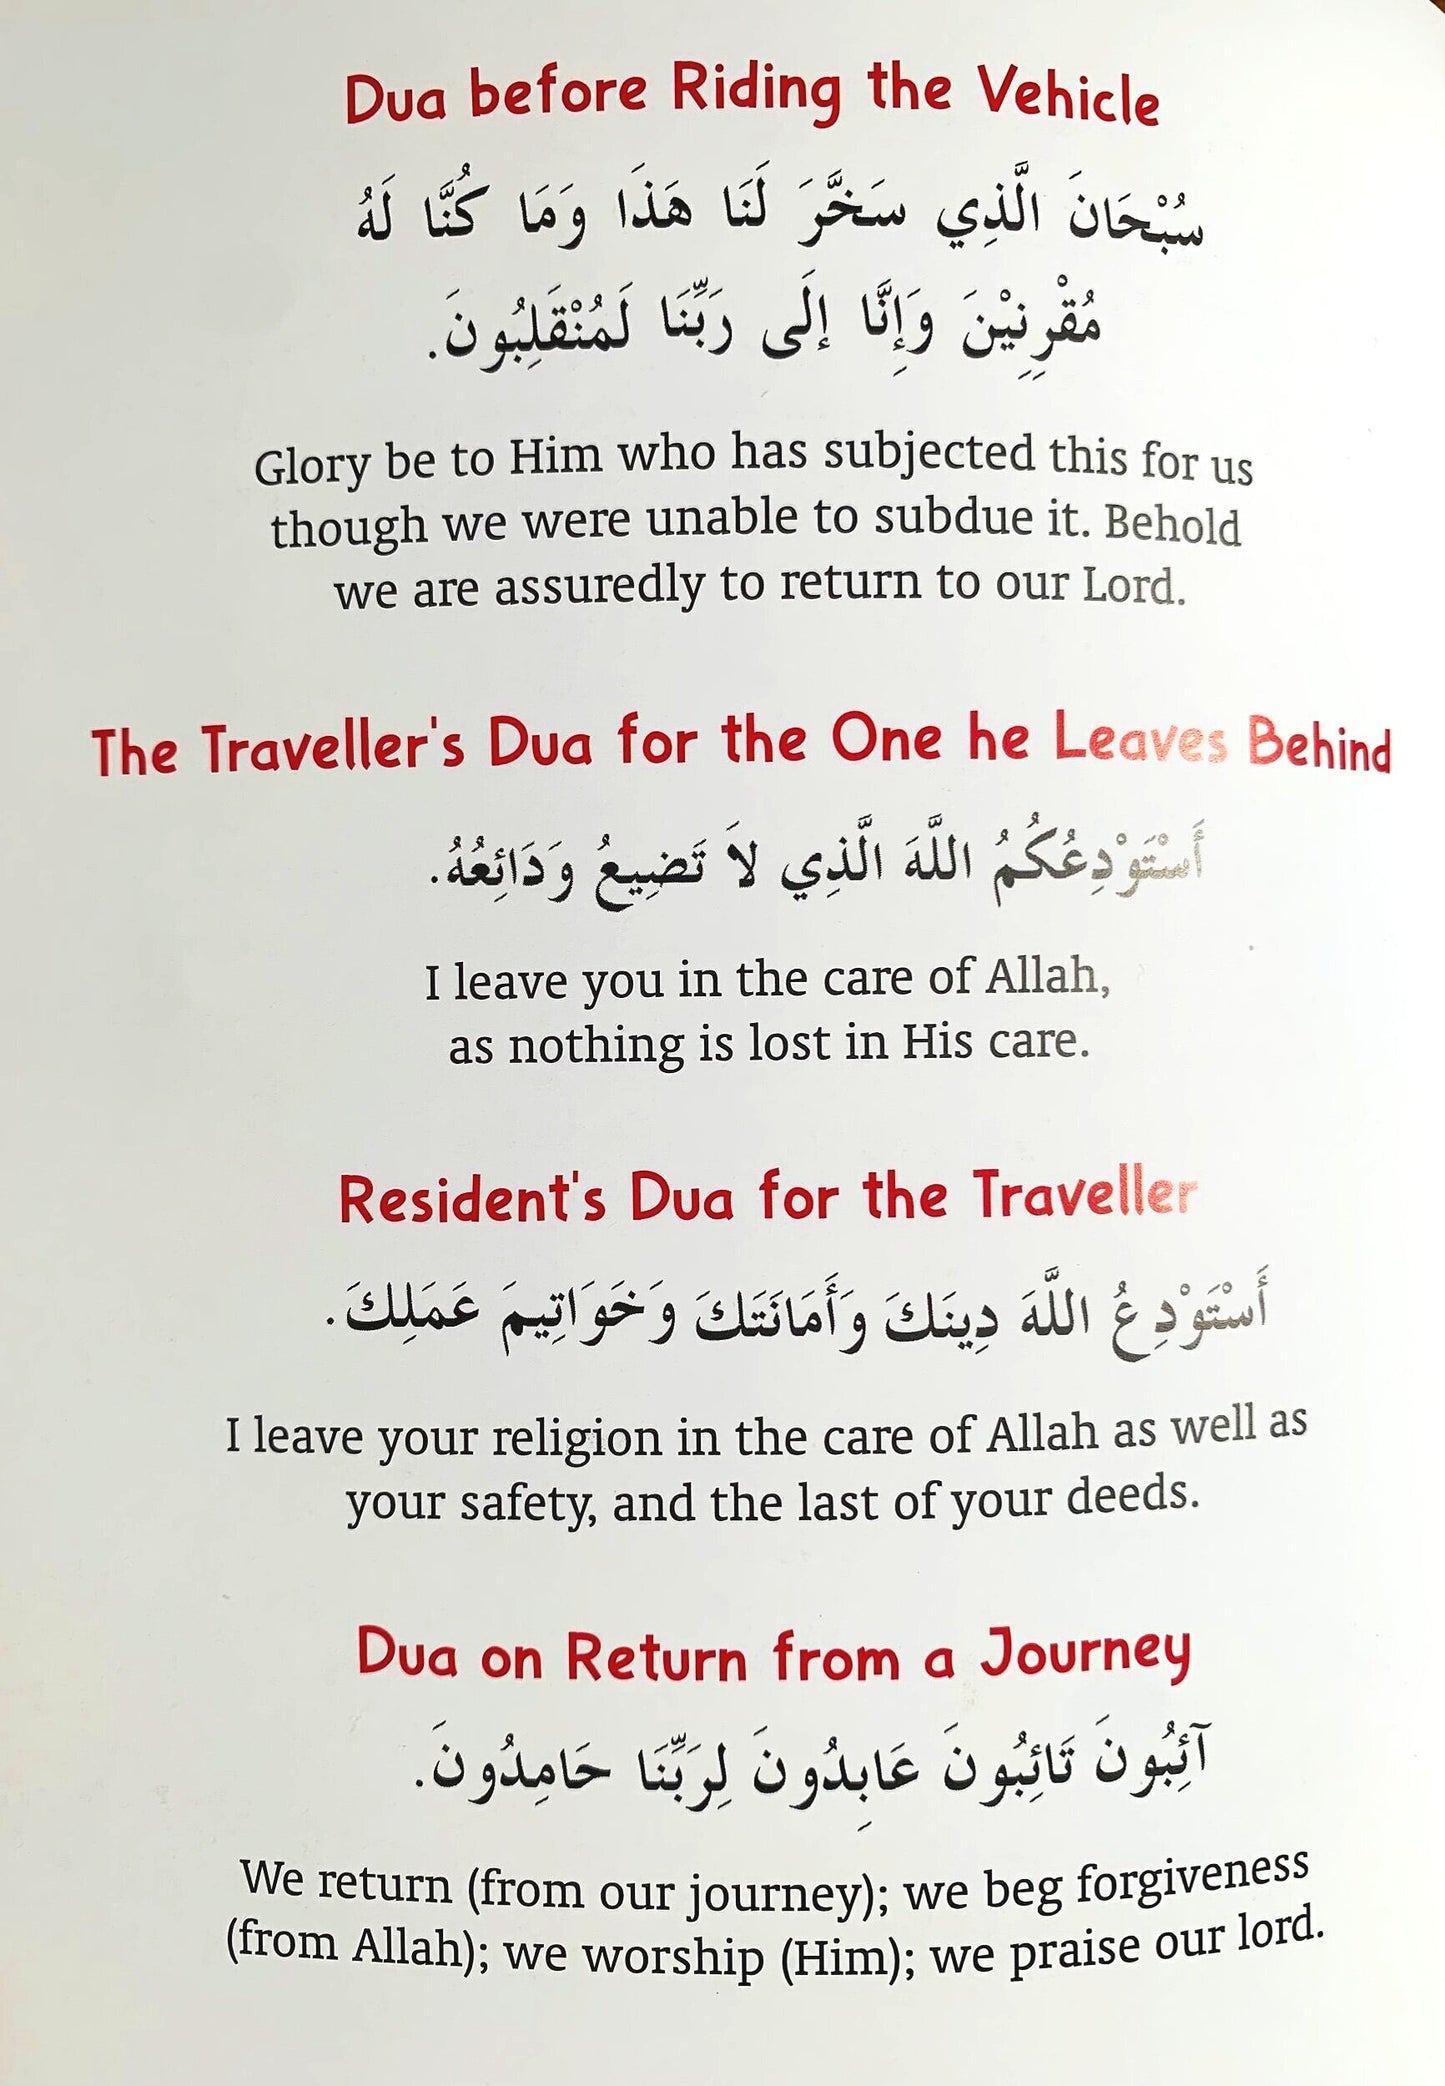 Dua before Riding the Vehicle
سُبْحَانَ الَّذِي سَخَّرَ لَنَا هَذَا وَمَا كُنَّا لَهُ
مُقْرِنِيْنَ وَإِنَّا إِلَى رَبِّنَا لَمُنْقَلِبُونَ.
Glory be to Him who has subjected this for us
though we were unable to subdue it. Behold
we are assuredly to return to our Lord.
The Traveller's Dua for the One he Leaves Behind
أَسْتَوْدِعُكُمُ اللَّهَ الَّذِي لاَ تَضِيعُ وَدَائِعُهُ.
I leave you in the care of Allah,
as nothing is lost in His care.
Resident's Dua for the Traveller
أَسْتَوْدِعُ اللَّهَ دِينَكَ وَأَمَانَتَكَ وَخَوَاتِيمَ عَمَلِكَ.
I leave your religion in the care of Allah as well as
your safety, and the last of your deeds.
Dua on Return from a Journey
آئِبُونَ تَائِبُونَ عَابِدُونَ لِرَبِّنَا حَامِدُونَ.
We return (from our journey); we beg forgiveness
(from Allah); we worship (Him); we praise our lord.